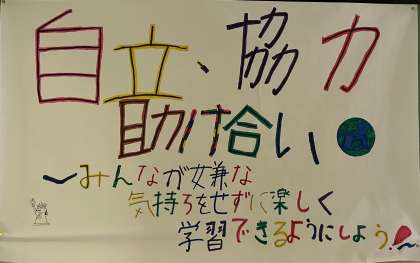 自立、協力
助け合い
～みんなが嫌な
気持ちをせずに楽しく
学習できるようにしよう!～